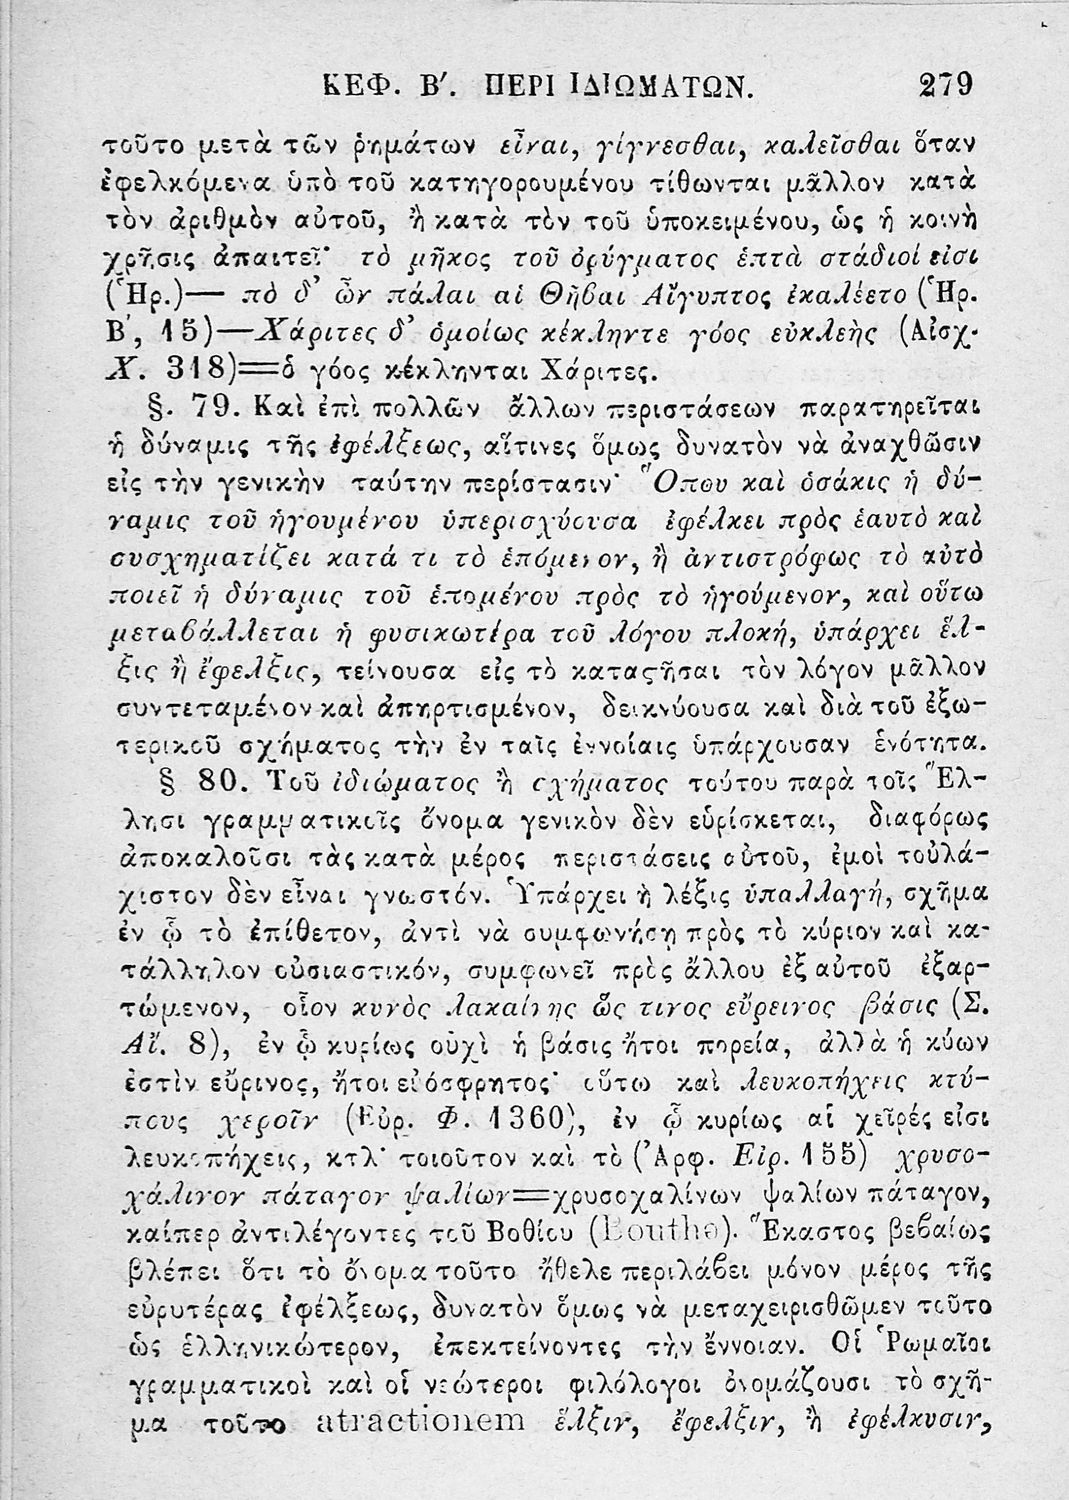 ΚΕΦ. Β′. ΠΕΡΙ ΙΔΙΩΜΑΤΩΝ. 279
τοῦτο μετὰ τῶν ῥημάτων εἶναι, γίγνεσθαι, καλεῖσθαι ὅταν
ἐφελκόμενα ὑπὸ τοῦ κατηγορουμένου τίθωνται μᾶλλον κατὰ
τὸν ἀριθμὸν αὐτοῦ, ἢ κατὰ τὸν τοῦ ὑποκειμένου, ὡς ἡ κοινὴ
χρῆσις ἀπαιτεῖ· τὸ μῆκος τοῦ ὀρύγματος ἑπτὰ στάδιοί εἰσι
(Ἡρ.)— πὸ δ’ ὦν πάλαι αἱ Θῆβαι Αἴγυπτος ἐκαλέετο (Ἡρ.
Β′, 15)—Χάριτες δ’ ὁμοίως κέκληντε γόος εὐκλεὴς (Αἰσχ.
Χ. 318)=ὁ γόος κέκληνται Χάριτες.
§. 79. Καὶ ἐπὶ πολλῶν ἄλλων περιστάσεων παρατηρεῖται
ἡ δύναμις τῆς ἐφέλξεως, αἵτινες ὅμως δυνατὸν νὰ ἀναχθῶσιν
εἰς τὴν γενικὴν ταύτην περίστασιν· Ὅπου καὶ ὁσάκις ἡ δύ-
ναμις τοῦ ἡγουμένου ὑπερισχύουσα ἐφέλκει πρὸς ἑαυτὸ καὶ
συσχηματίζει κατά τι τὸ ἑπόμενον, ἢ ἀντιστρόφως τὸ αὐτὸ
ποιεῖ ἡ δύναμις τοῦ ἑπομένου πρὸς τὸ ἡγούμενον, καὶ οὕτω
μεταβάλλεται ἡ φυσικωτέρα τοῦ λόγου πλοκή, ὑπάρχει ἕλ-
ξις ἢ ἔφελξις, τείνουσα εἰς τὸ καταςῆσαι τὸν λόγον μᾶλλον
συντεταμένον καὶ ἀπηρτισμένον, δεικνύουσα καὶ διὰ τοῦ ἐξω-
τερικοῦ σχήματος τὴν ἐν ταῖς ἐννοίαις ὑπάρχουσαν ἑνότητα.
§ 80. Τοῦ ἰδιώματος ἢ σχήματος τούτου παρὰ τοῖς Ἕλ-
λησι γραμματικοῖς ὄνομα γενικὸν δὲν εὑρίσκεται, διαφόρως
ἀποκαλοῦσι τὰς κατὰ μέρος περιστάσεις αὐτοῦ, ἐμοὶ τοὐλά-
χιστον δὲν εἶναι γνωστόν. Ὑπάρχει ἡ λέξις ὑπαλλαγή, σχῆμα
ἐν ᾧ τὸ ἐπίθετον, ἀντὶ νὰ συμφωνήσῃ πρὸς τὸ κύριον καὶ κα-
τάλληλον οὐσιαστικόν, συμφωνεῖ πρὸς ἄλλου ἐξ αὐτοῦ ἐξαρ-
τώμενον, οἷον κυνὸς λακαίνης ὥς τινος εὔρεινος βάσις (Σ.
Αἴ. 8), ἐν ᾧ κυρίως οὐχὶ ἡ βάσις ἤτοι πορεία, ἀλλὰ ἡ κύων
ἐστὶν εὔρινος, ἤτοι εὐόσφρητος· οὕτω καὶ λευκοπήχεις κτύ-
πους χεροῖν (Εὐρ. Φ. 1360), ἐν ᾧ κυρίως αἱ χεῖρές εἰσι
λευκοπήχεις, κτλ· τοιοῦτον καὶ τὸ (Ἀρφ. Εἰρ. 155) χρυσο-
χάλινον πάταγον ψαλίων=χρυσοχαλίνων ψαλίων πάταγον,
καίπερ ἀντιλέγοντες τοῦ Βοθίου (Bouthe). Ἕκαστος βεβαίως
βλέπει ὅτι τὸ ὄνομα τοῦτο ἤθελε περιλάβει μόνον μέρος τῆς
εὐρυτέρας ἐφέλξεως, δυνατὸν ὅμως νὰ μεταχειρισθῶμεν τοῦτο
ὡς ἑλληνικώτερον, ἐπεκτείνοντες τὴν ἔννοιαν. Οἱ Ῥωμαῖοι
γραμματικοὶ καὶ οἱ νεώτεροι φιλόλογοι ὀνομάζουσι τὸ σχῆ-
μα τοῦτο atractionem ἕλξιν, ἔφελξιν, ἢ ἐφέλκυσιν,